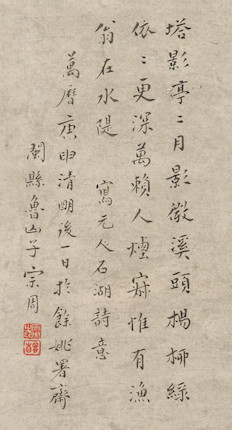 塔影亭亭月影微溪頭楊柳綠
依依更深萬籟人煙寂惟有漁
翁在水隄 寫元人石湖詩意
萬曆庚申清明後一日於餘姚署齋
閩縣魯山子宗周